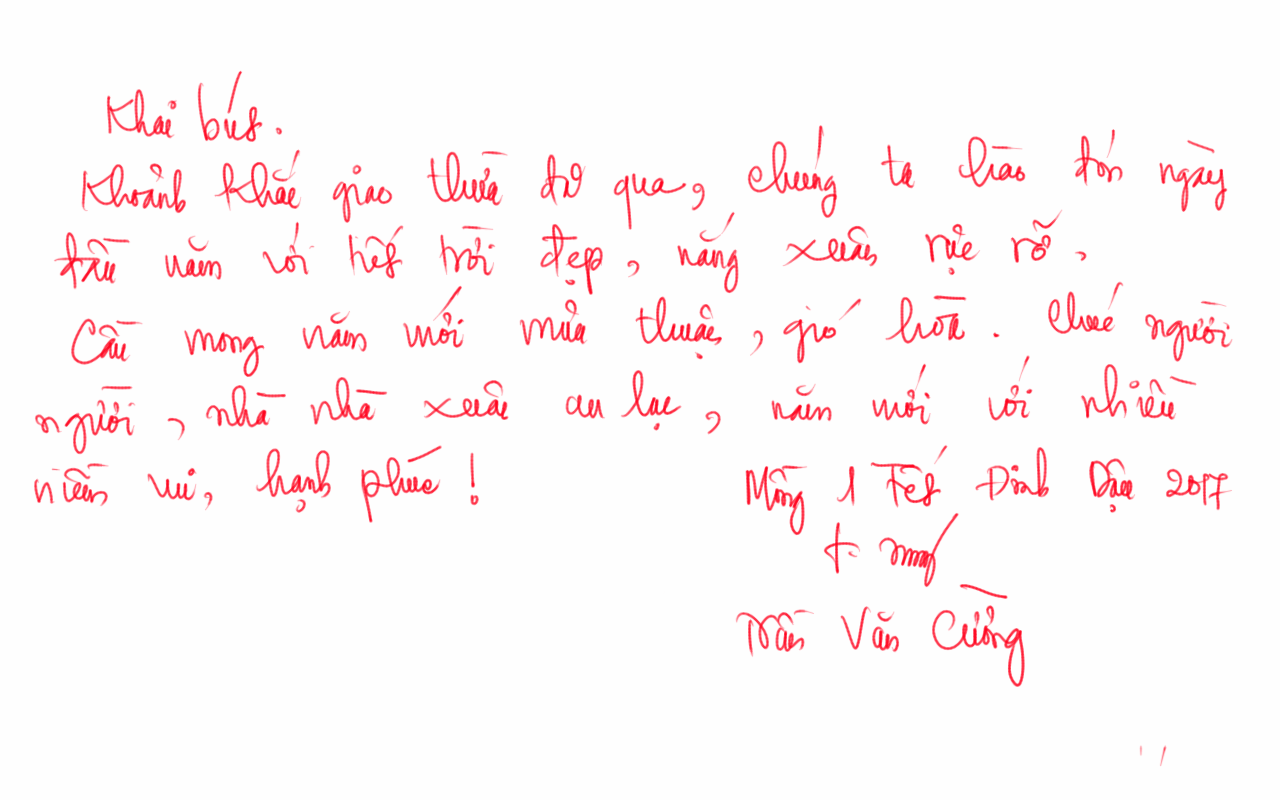 Khai bút.
Khoảnh khắc giao thừa đã qua, chúng ta chào đón ngày
đầu năm với tiết trời đẹp, nắng xuân rực rỡ.
Cầu mong năm mới mưa thuận, gió hòa. Chúc người
người, nhà nhà xuân an lạc, năm mới với nhiều
niềm vui, hạnh phúc!
Mồng 1 Tết Đinh Dậu 2017
Trần Văn Cường